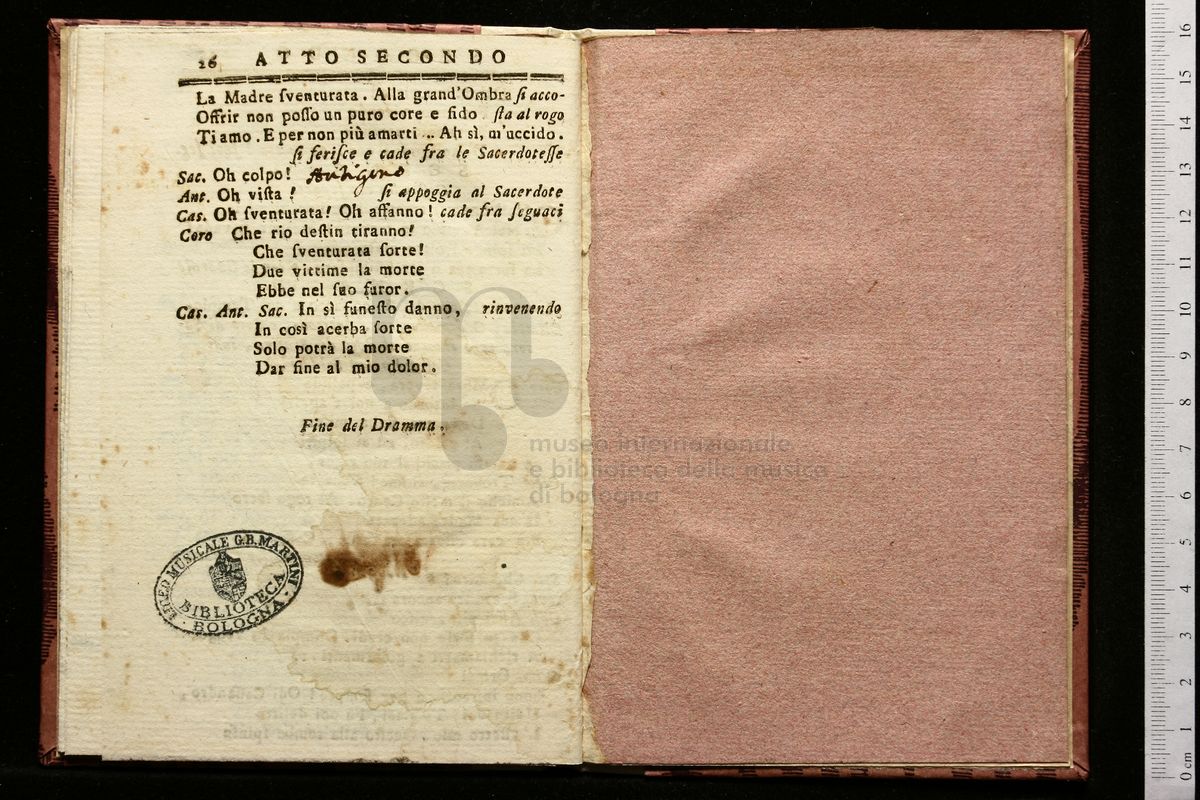 26 ATTO SECONDO
La Madre ſventurata. Alla grand'Ombra ſi acco-
Offrir non poſſo un puro core e fido ſta al rogo
Ti amo. E per non più amarti .. Ah sì, m'uccido.
ſi feriſce e cade fra le Sacerdoteſſe
Sac. Oh colpo!
Ant. Oh viſta! ſi appoggia al Sacerdote
Cas. Oh ſventurata! Oh affanno! cade fra ſeguaci
Coro Che rio deſtin tiranno!
Che ſventurata ſorte!
Due vittime la morte
Ebbe nel ſuo furor.
Cas. Ant. Sac. In sì funeſto danno, rinvenendo
In così acerba ſorte
Solo potrà la morte
Dar fine al mio dolor.
Fine del Dramma.
museo internazionale
e biblioteca della musica
di bologna
LICEO MUSICALE G.B. MARTINI
BIBLIOTECA
· BOLOGNA ·
0 cm 1 2 3 4 5 6 7 8 9 10 11 12 13 14 15 16